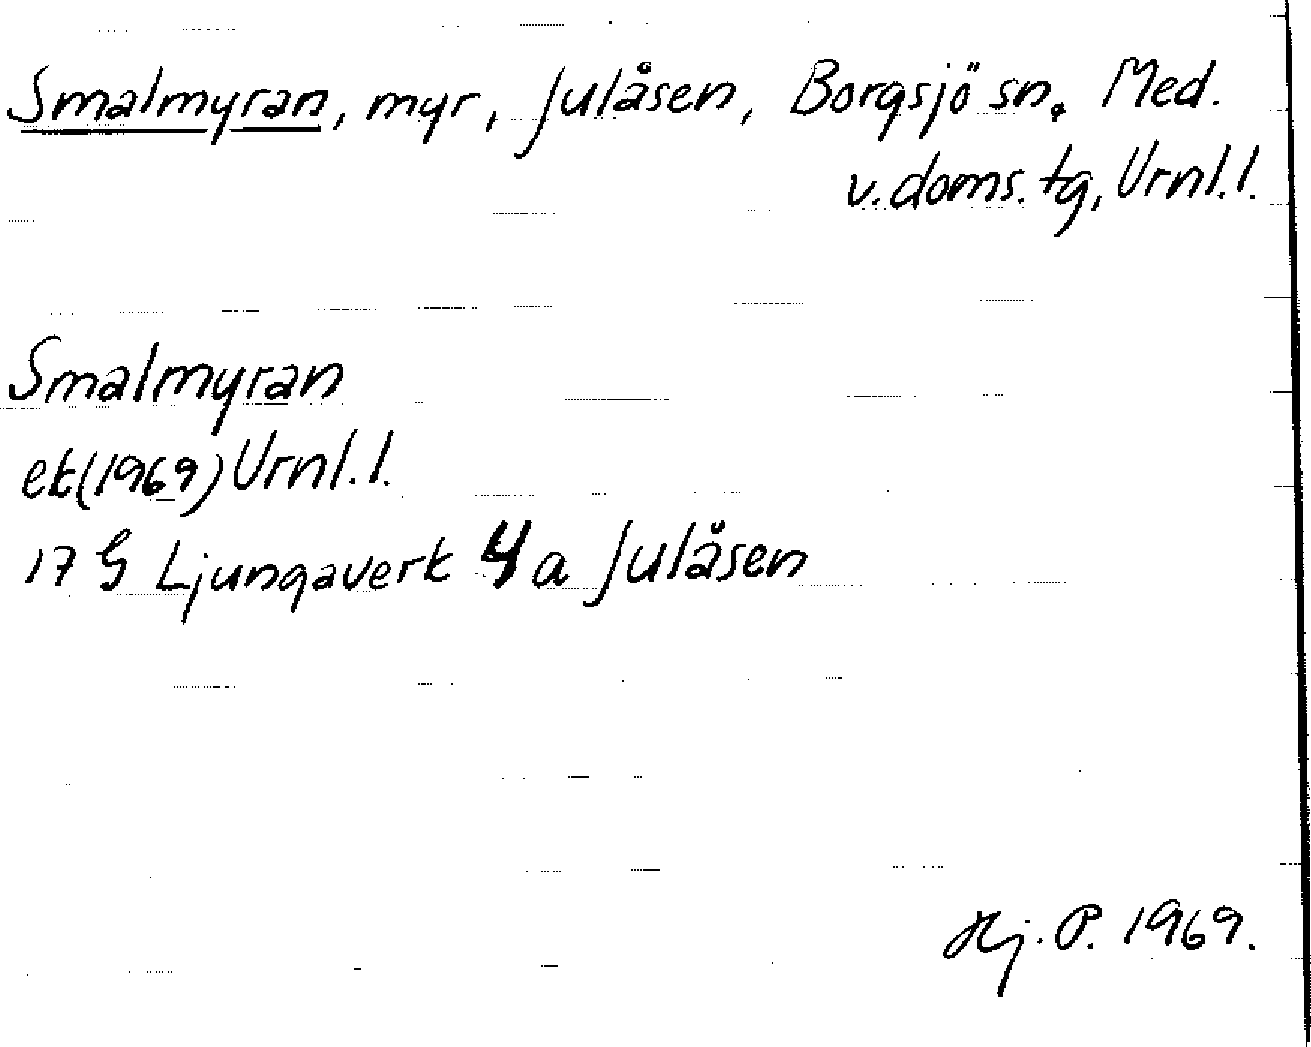 Smalmyran, myr, Julåsen, Borgsjö sn. Med.
v. doms. tg, Urnl. l.
Smalmyran
ek (1969) Urnl. l.
17 G Ljungaverk 4 a Julåsen
Hj. P. 1969.